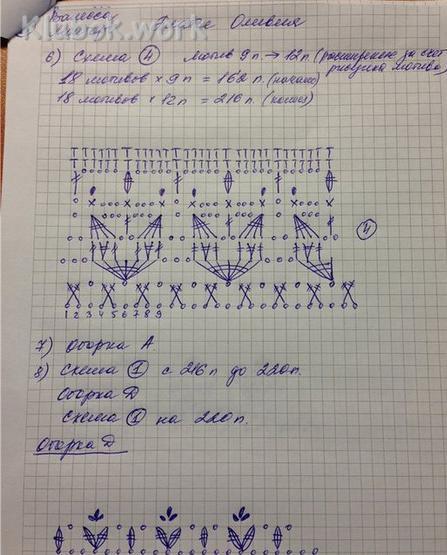 Klubok.work
Оливия
6) Схема 4 мотив 9п. → 12п. (расширение за счет
рисунка мотива)
18 мотивов × 9п = 162 п. (начало)
18 мотивов × 12п = 216 п. (конец)
4
1 2 3 4 5 6 7 8 9
7) Опорка А.
8) Схема 1 с 216п до 220п.
Опорка Д
Схема 1 на 220п.
Опорка Д